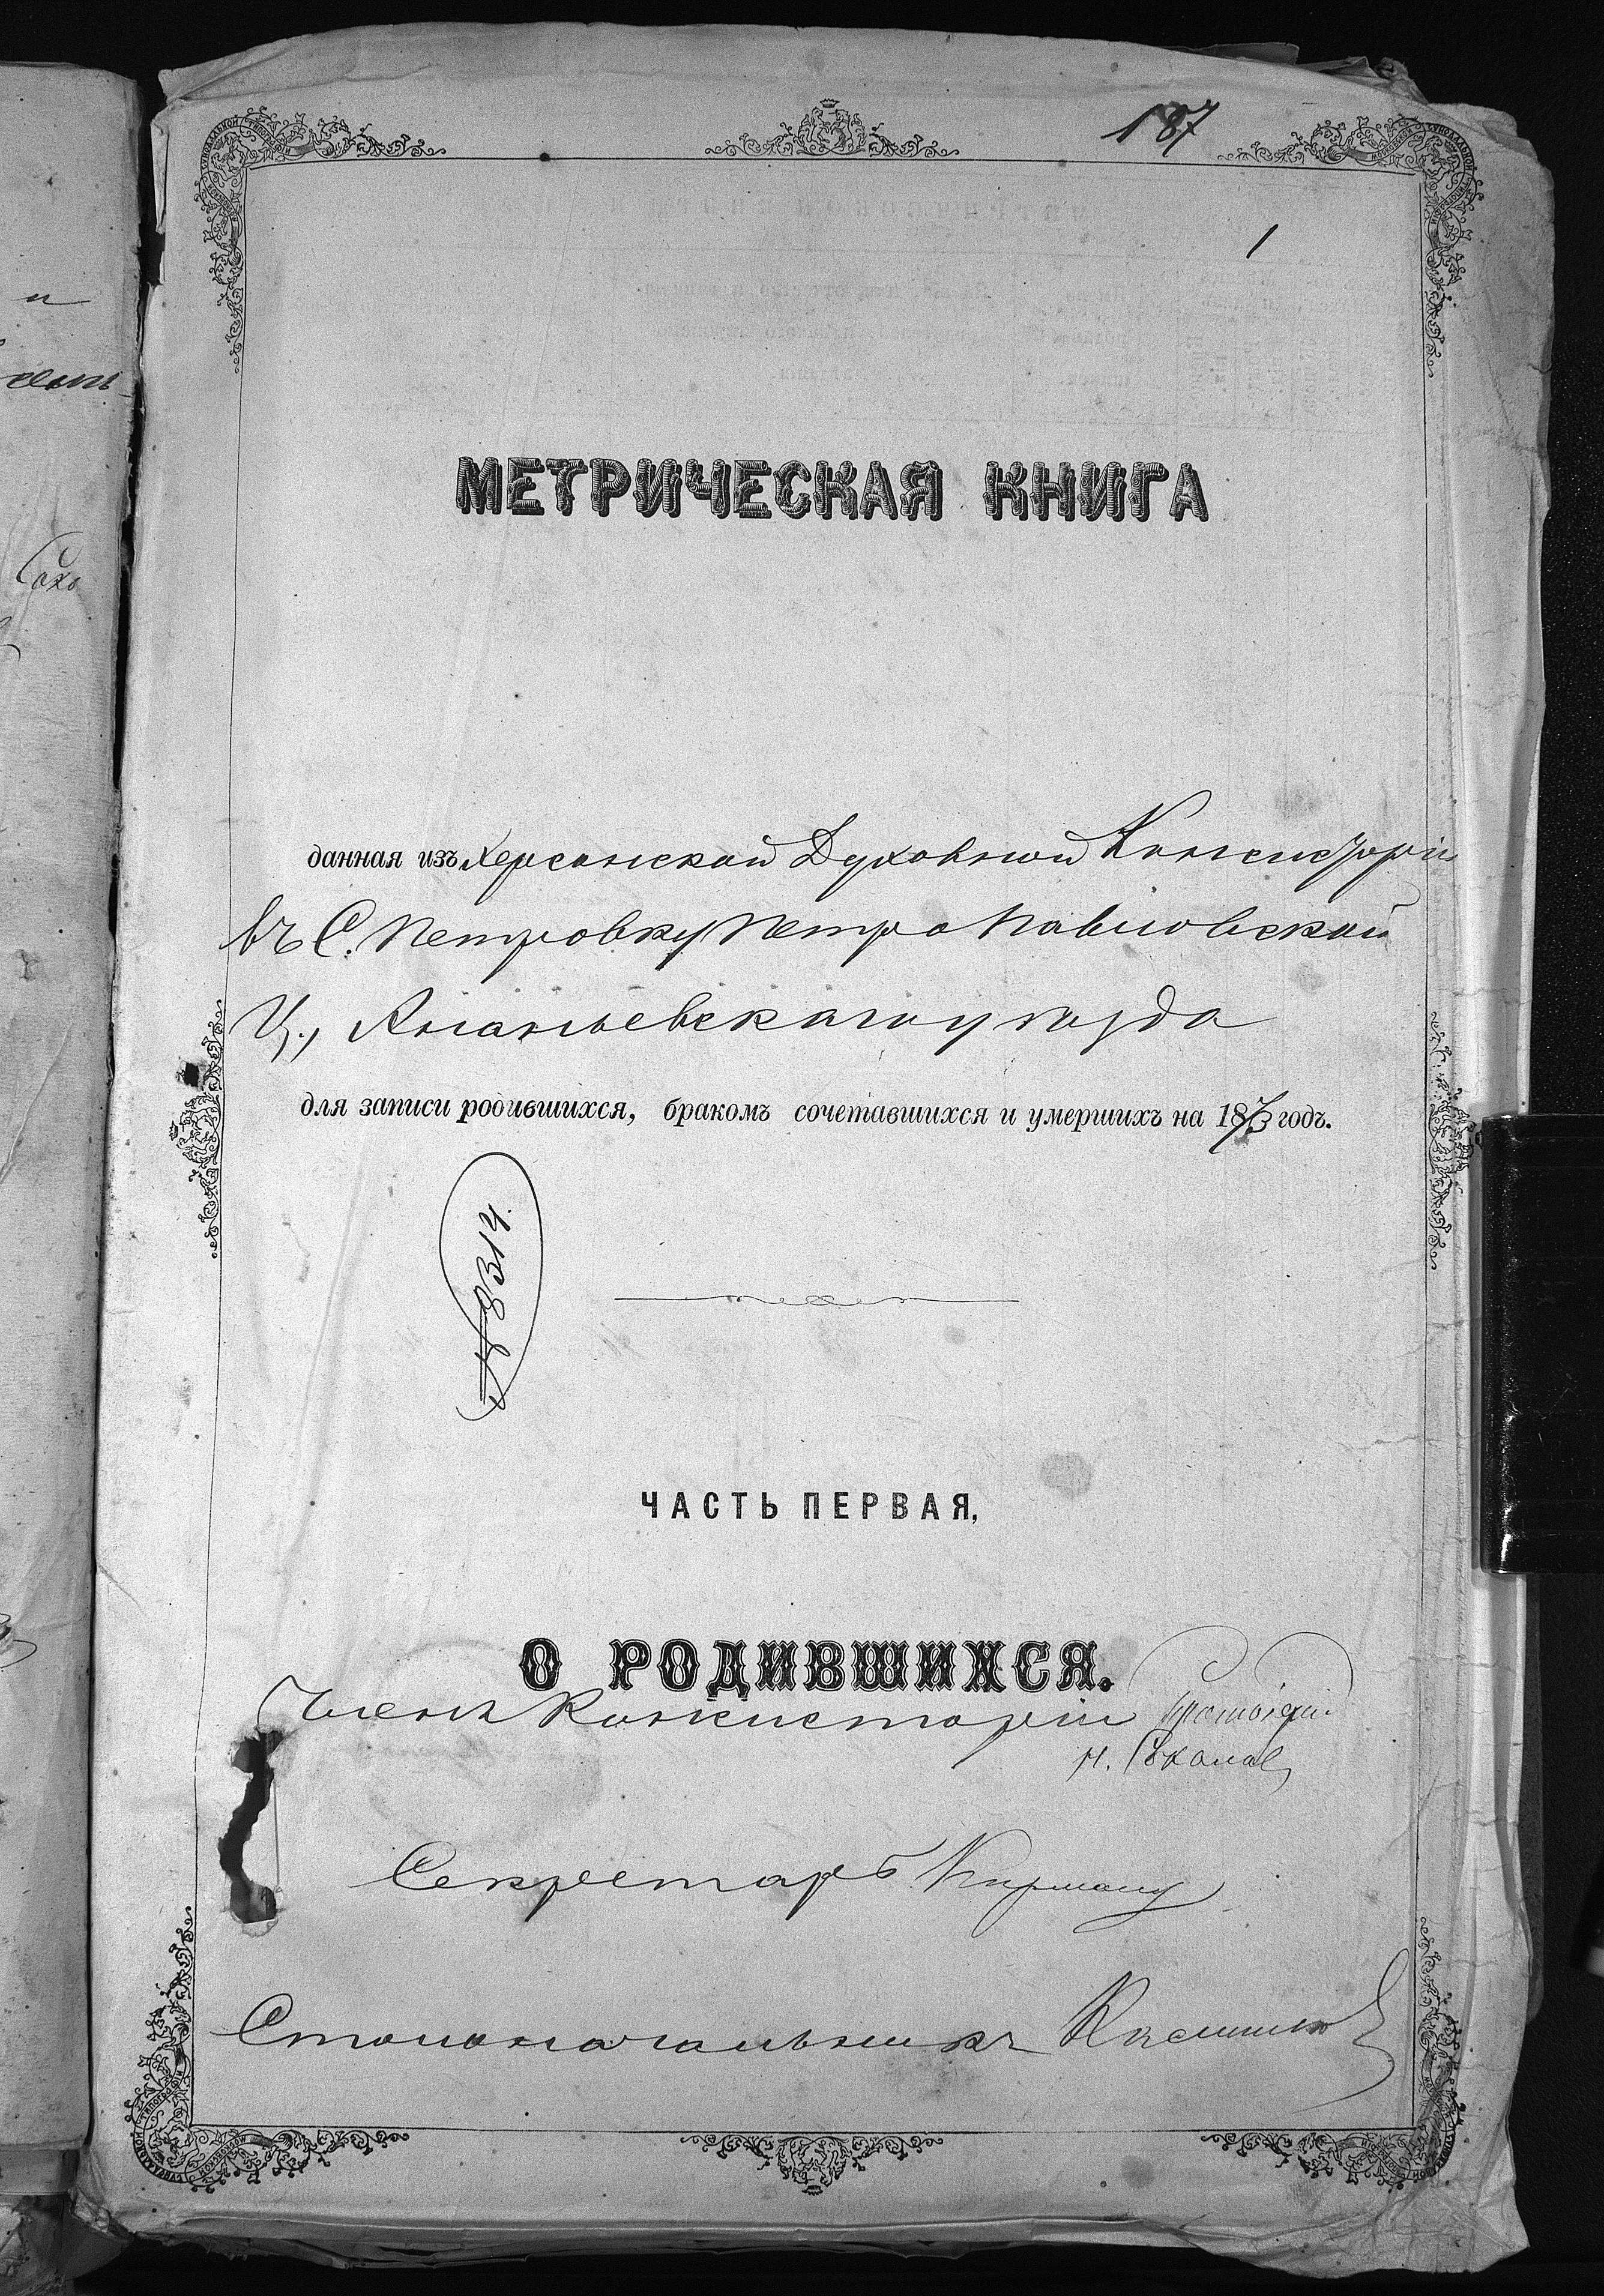 187
1
МЕТРИЧЕСКАЯ КНИГА
данная изъ Херсонской Духовной Консисторіи
въ С. Петровку Петро Павловской
Ц., Ананьевскаго уѣзда
для записи родившихся, бракомъ сочетавшихся и умершихъ на 1873 годъ.
№ 8314.
ЧАСТЬ ПЕРВАЯ,
О РОДИВШИХСЯ.
Членъ Консисторіи
Н. Соколов
Секретарь
Столоначальникъ